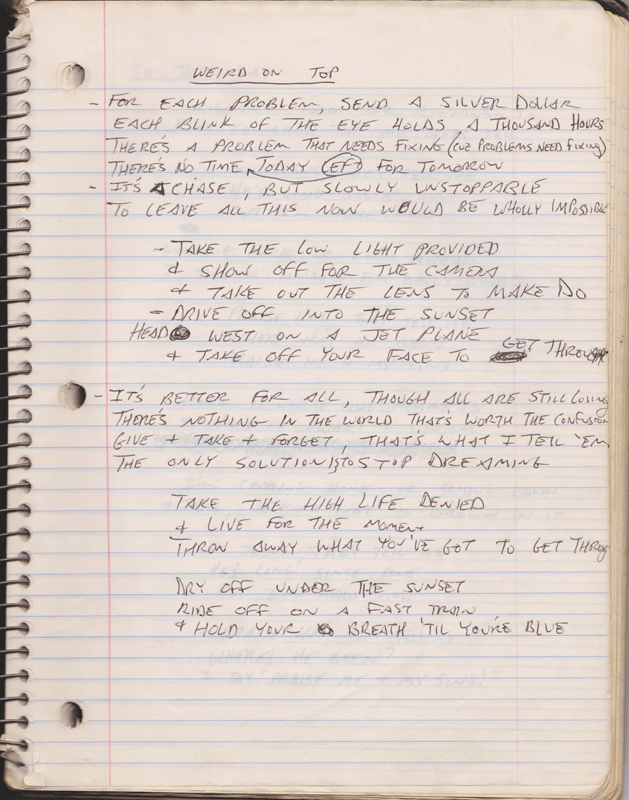 WEIRD ON TOP
- FOR EACH PROBLEM, SEND A SILVER DOLLAR
EACH BLINK OF THE EYE HOLDS A THOUSAND HOURS
THERE'S A PROBLEM THAT NEEDS FIXING (CUZ PROBLEMS NEED FIXING)
THERE'S NO TIME TODAY LEFT FOR TOMORROW
- IT'S A CHASE, BUT SLOWLY UNSTOPPABLE
TO LEAVE ALL THIS NOW WOULD BE WHOLLY IMPOSSIBLE
- TAKE THE LOW LIGHT PROVIDED
& SHOW OFF FOR THE CAMERA
& TAKE OUT THE LENS TO MAKE DO
- DRIVE OFF INTO THE SUNSET
HEAD WEST ON A JET PLANE
& TAKE OFF YOUR FACE TO GET THROUGH
- IT'S BETTER FOR ALL, THOUGH ALL ARE STILL LOSING
THERE'S NOTHING IN THE WORLD THAT'S WORTH THE CONFUSION
GIVE + TAKE + FORGET, THAT'S WHAT I TELL 'EM
THE ONLY SOLUTION IS TO STOP DREAMING
TAKE THE HIGH LIFE DENIED
& LIVE FOR THE MOMENT
THROW AWAY WHAT YOU'VE GOT TO GET THROUGH
DRY OFF UNDER THE SUNSET
RIDE OFF ON A FAST TRAIN
& HOLD YOUR BREATH 'TIL YOU'RE BLUE
WHERE'S HE BEEN?
"PRAISE ME + MY SINS!"